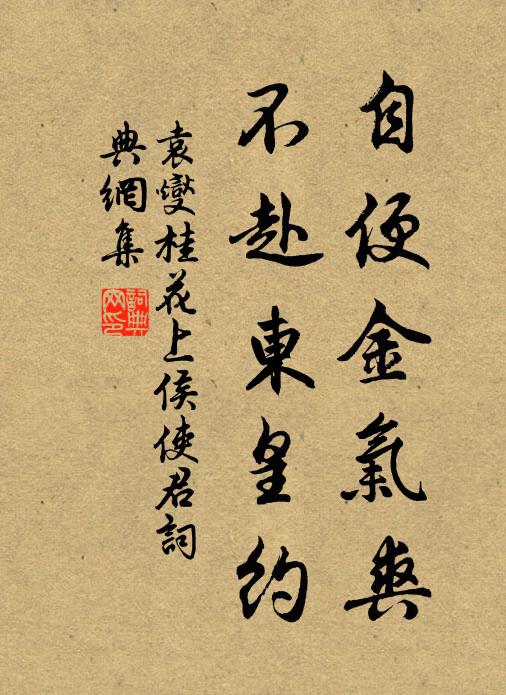 自便金氣爽
不赴東皇約
袁燮桂花上侯使君詞
典網集
詞典
网印